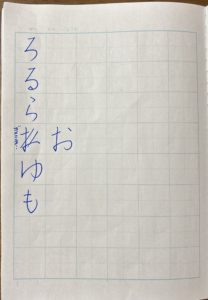 お
ろるらゆも